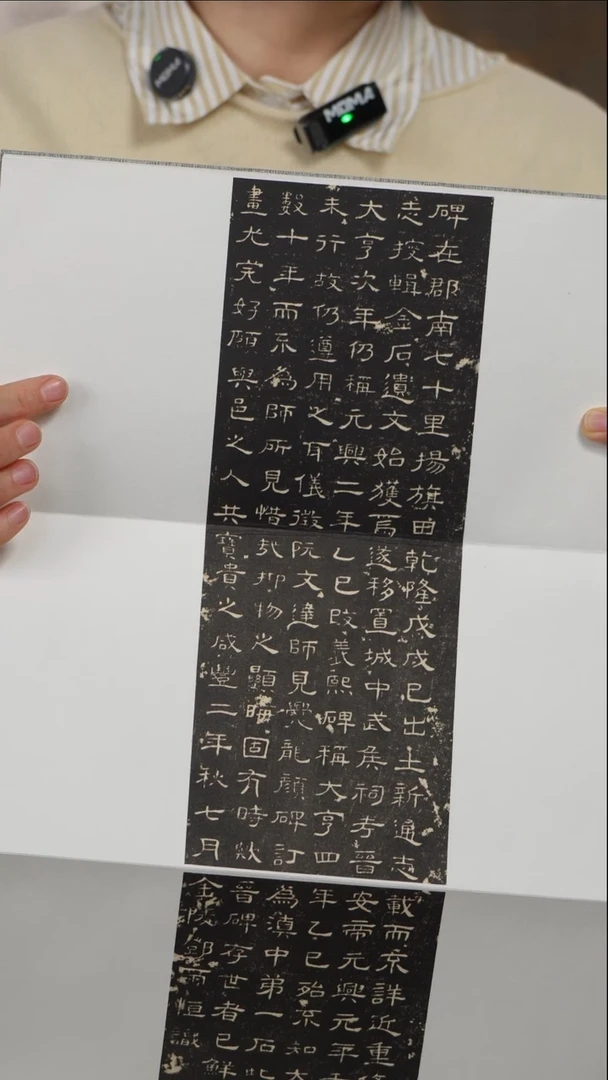 MOMA
MOMA
碑在郡南七十里揚旗田乾隆戊戌已出土新通志載而不詳近重
志搜輯金石遺文始獲焉遂移置城中武侯祠考晉安帝元興元年
大亨次年仍稱元興二年乙巳改義熙碑稱大亨四年乙巳殆不知大
未行故仍遵用之耳儀徵阮文達師見爨龍顏碑訂為滇中第一石此
数十年而不為師所見惜哉抑物之顯晦固有時歟晉碑存世者已鮮
畫尤完好願與邑之人共寶貴之咸豐二年秋七月金陵鄧爾恒識